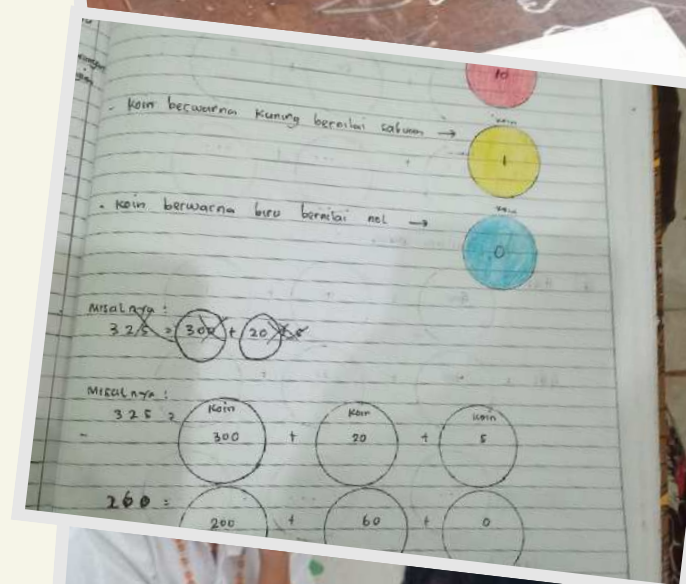 10
- Koin berwarna Kuning bernilai satuan →
koin
1
- Koin berwarna biru bernilai nol →
koin
0
Misalnya :
325 = 300 + 20
Misalnya :
325 = Koin 300 + Koin 20 + Koin 5
260 = 200 + 60 + 0